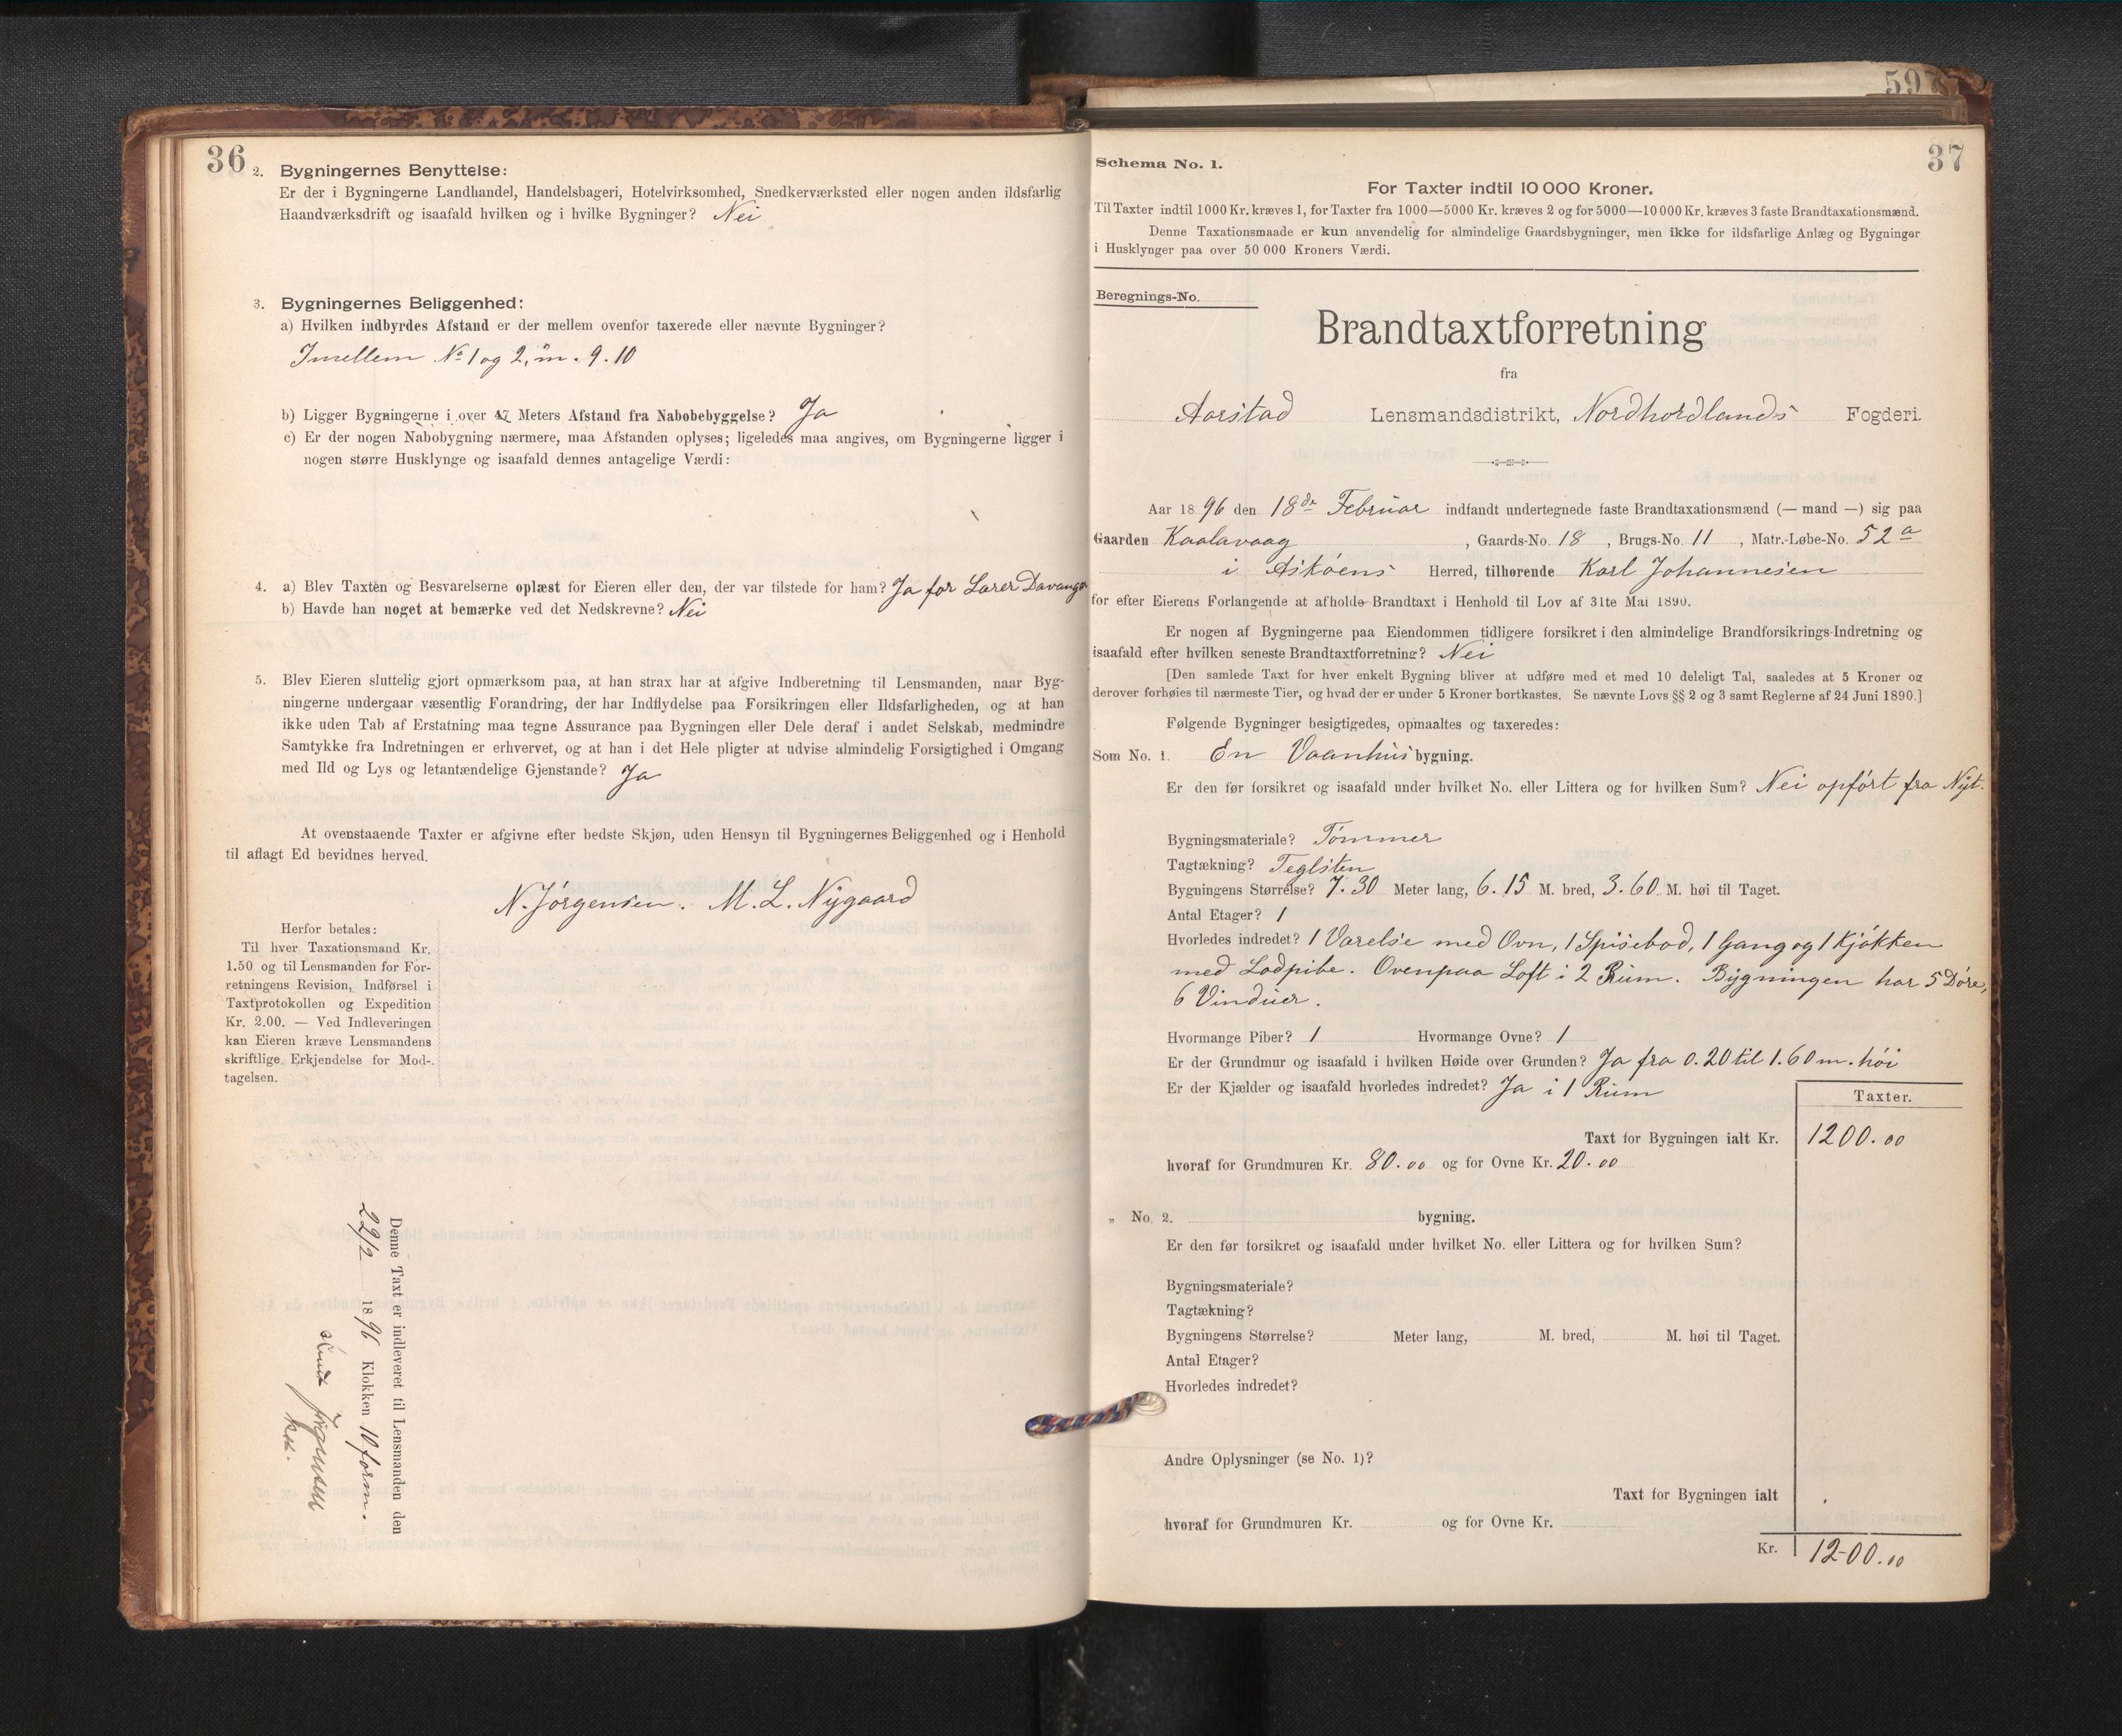 36
2. Bygningernes Benyttelse:
Er der i Bygningerne Landhandel, Handelsbageri, Hotelvirksomhed, Snedkerværksted eller nogen anden ildsfarlig
Haandværksdrift og isaafald hvilken og i hvilke Bygninger? Nei
3. Bygningernes Beliggenhed:
a) Hvilken indbyrdes Afstand er der mellem ovenfor taxerede eller nævnte Bygninger?
Imellem No 1 og 2, m. 9.10
b) Ligger Bygningerne i over Meters Afstand fra Nabobebyggelse? Ja
c) Er der nogen Nabobygning nærmere, maa Afstanden oplyses; ligeledes maa angives, om Bygningerne ligger i
nogen større Husklynge og isaafald dennes antagelige Værdi:
4. a) Blev Taxten og Besvarelserne oplæst for Eieren eller den, der var tilstede for ham? Ja for Lærer Davanger
b) Havde han noget at bemærke ved det Nedskrevne? Nei
5. Blev Eieren sluttelig gjort opmærksom paa, at han strax har at afgive Indberetning til Lensmanden, naar Byg-
ningerne undergaar væsentlig Forandring, der har Indflydelse paa Forsikringen eller Ildsfarligheden, og at han
ikke uden Tab af Erstatning maa tegne Assurance paa Bygningen eller Dele deraf i andet Selskab, medmindre
Samtykke fra Indretningen er erhvervet, og at han i det Hele pligter at udvise almindelig Forsigtighed i Omgang
med Ild og Lys og letantændelige Gjenstande? Ja
At ovenstaaende Taxter er afgivne efter bedste Skjøn, uden Hensyn til Bygningernes Beliggenhed og i Henhold
til aflagt Ed bevidnes herved.
N. Jørgensen. M. L. Nygaard
Herfor betales:
Til hver Taxationsmand Kr.
1.50 og til Lensmanden for For-
retningens Revision, Indførsel i
Taxtprotokollen og Expedition
Kr. 2.00. — Ved Indleveringen
kan Eieren kræve Lensmandens
skriftlige Erkjendelse for Mod-
tagelsen.
Denne Taxt er indleveret til Lensmanden den
22/2 1896 Klokken 10 form.
Knud Jørgensen
597
37
Schema No. 1.
For Taxter indtil 10 000 Kroner.
Til Taxter indtil 1000 Kr. kræves 1, for Taxter fra 1000—5000 Kr. kræves 2 og for 5000—10 000 Kr. kræves 3 faste Brandtaxationsmænd.
Denne Taxationsmaade er kun anvendelig for almindelige Gaardsbygninger, men ikke for ildsfarlige Anlæg og Bygninger
i Husklynger paa over 50 000 Kroners Værdi.
Beregnings-No.
Brandtaxtforretning
fra
Aarstad Lensmandsdistrikt, Nordhordlands Fogderi.
Aar 1896 den 18de Februar indfandt undertegnede faste Brandtaxationsmænd (— mand —) sig paa
Gaarden Kaalavaag, Gaards-No. 18, Brugs-No. 11, Matr.-Løbe-No. 52 a
i Askøens Herred, tilhørende Karl Johannesen
for efter Eierens Forlangende at afholde Brandtaxt i Henhold til Lov af 31te Mai 1890.
Er nogen af Bygningerne paa Eiendommen tidligere forsikret i den almindelige Brandforsikrings-Indretning og
isaafald efter hvilken seneste Brandtaxtforretning? Nei
[Den samlede Taxt for hver enkelt Bygning bliver at udføre med et med 10 deleligt Tal, saaledes at 5 Kroner og
derover forhøies til nærmeste Tier, og hvad der er under 5 Kroner bortkastes. Se nævnte Lovs §§ 2 og 3 samt Reglerne af 24 Juni 1890.]
Følgende Bygninger besigtigedes, opmaaltes og taxeredes:
Som No. 1. En Vaanhus bygning.
Er den før forsikret og isaafald under hvilket No. eller Littera og for hvilken Sum? Nei opført fra Nyt.
Bygningsmateriale? Tømmer
Tagtækning? Teglsten
Bygningens Størrelse? 7.30 Meter lang, 6.15 M. bred, 3.60 M. høi til Taget.
Antal Etager? 1
Hvorledes indredet? 1 Værelse med Ovn, 1 Spisebod, 1 Gang og 1 Kjøkken
med Ladpibe. Ovenpaa Loft i 2 Rum. Bygningen har 5 Døre,
6 Vinduer.
Hvormange Piber? 1 Hvormange Ovne? 1
Er der Grundmur og isaafald i hvilken Høide over Grunden? Ja fra 0.20 til 1.60 m. høi
Er der Kjælder og isaafald hvorledes indredet? Ja i 1 Rum
Taxter.
Taxt for Bygningen ialt Kr. 1200.00
hvoraf for Grundmuren Kr. 80.00 og for Ovne Kr. 20.00
„ No. 2. bygning.
Er den før forsikret og isaafald under hvilket No. eller Littera og for hvilken Sum?
Bygningsmateriale?
Tagtækning?
Bygningens Størrelse? Meter lang, M. bred, M. høi til Taget.
Antal Etager?
Hvorledes indredet?
Andre Oplysninger (se No. 1)?
Taxt for Bygningen ialt
hvoraf for Grundmuren Kr. og for Ovne Kr.
Kr. 1200.00